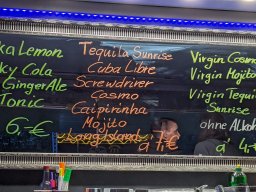 ka Lemon
ky Cola
GingerAle
Tonic
6,-€
Tequila Sunrise
Cuba Libre
Screwdriver
Cosmo
Caipirinha
Mojito
Longisland
a 7,-€
Virgin Cosmo
Virgin Mojito
Virgin Tequi
Sunrise
ohne Alkoh
a 4,-